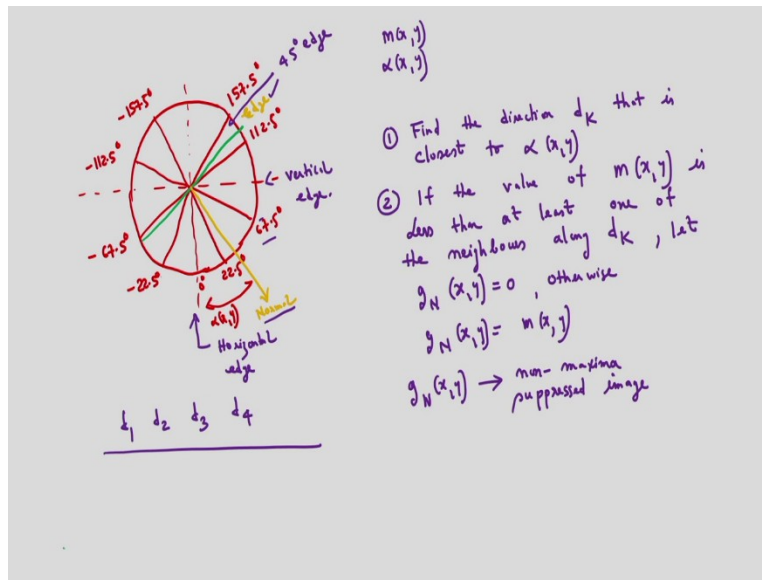 45° edge
-157.5°
157.5°
edge
112.5°
-112.5°
← vertical
edge.
-67.5°
67.5°
-22.5°
0°
22.5°
α(x,y)
Normal
Horizontal
edge
d1 d2 d3 d4
m(x,y)
α(x,y)
① Find the direction dK that is
closest to α(x,y)
② If the value of m(x,y) is
less than at least one of
the neighbours along dK, let
gN(x,y)=0, otherwise
gN(x,y)= m(x,y)
gN(x,y) → non-maxima
suppressed image